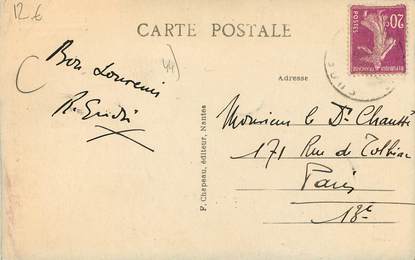 12 €
CARTE POSTALE
20c
POSTES
REPUBLIQUE FRANÇAISE
44
Bon Souvenir
Adresse
Monsieur le Dr Chaussé
171 Rue de Tolbiac
Paris
13e
F. Chapeau, éditeur, Nantes